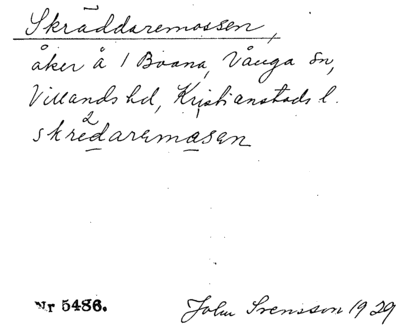 Skräddaremossen,
åker å 1 Boana, Vånga sn,
Villands hd, Kristianstads l.
2
skredaremåsen
Nr 5486.
John Svensson 1929